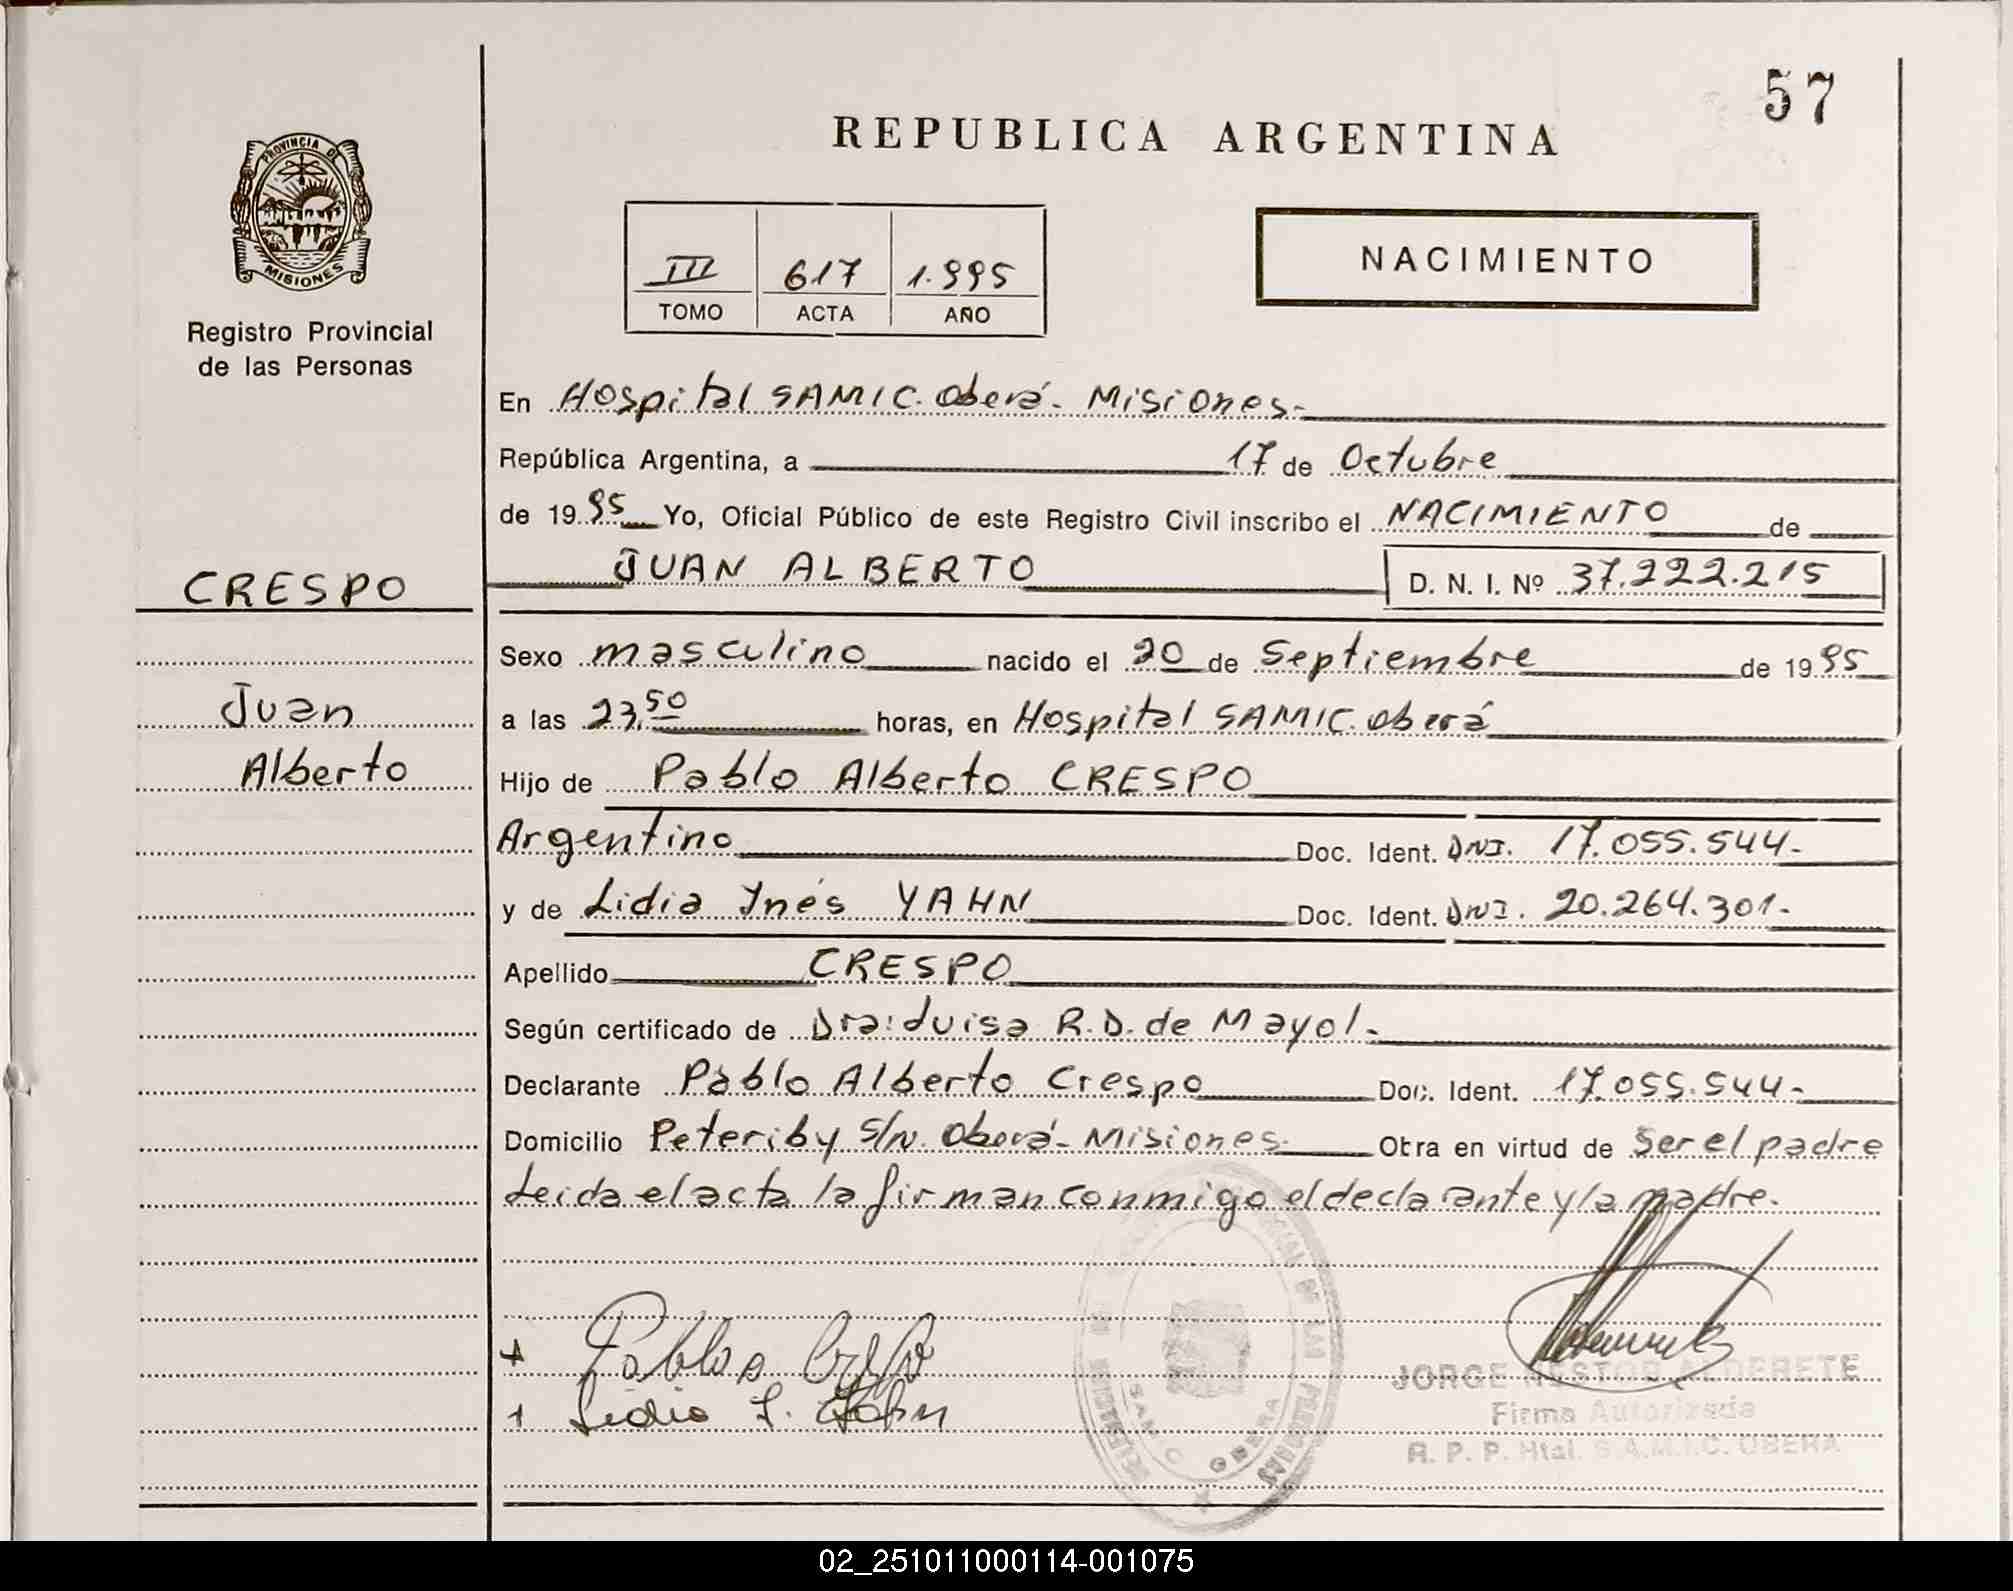 57
REPUBLICA ARGENTINA
PROVINCIA DE
MISIONES
Registro Provincial
de las Personas
III 617 1.995
TOMO ACTA AÑO
NACIMIENTO
En Hospital SAMIC. Oberá - Misiones.-
República Argentina, a 17 de Octubre
de 19 95 Yo, Oficial Público de este Registro Civil inscribo el NACIMIENTO de
JUAN ALBERTO D. N. I. Nº 37.222.215
CRESPO
Juan
Alberto
Sexo masculino nacido el 20 de Septiembre de 19 95
a las 23,50 horas, en Hospital SAMIC. Oberá
Hijo de Pablo Alberto CRESPO
Argentino Doc. Ident. DNI. 17.055.544.-
y de Lidia Ynés YAHN Doc. Ident. DNI. 20.264.301.-
Apellido CRESPO
Según certificado de Dra: Luisa R.D. de Mayol.-
Declarante Pablo Alberto Crespo Doc. Ident. 17.055.544.-
Domicilio Peteriby S/N. Oberá - Misiones.- Obra en virtud de Ser el padre
Leida el acta la firman conmigo el declarante y la madre.
Pablo A Crespo
Lidia I. Yahn
DE LAS PERSONAS
SAMIC
OBERA
JORGE NESTOR ALDERETE
Firma Autorizada
R. P. P. Htal. S.A.M.I.C. OBERA
02_251011000114-001075